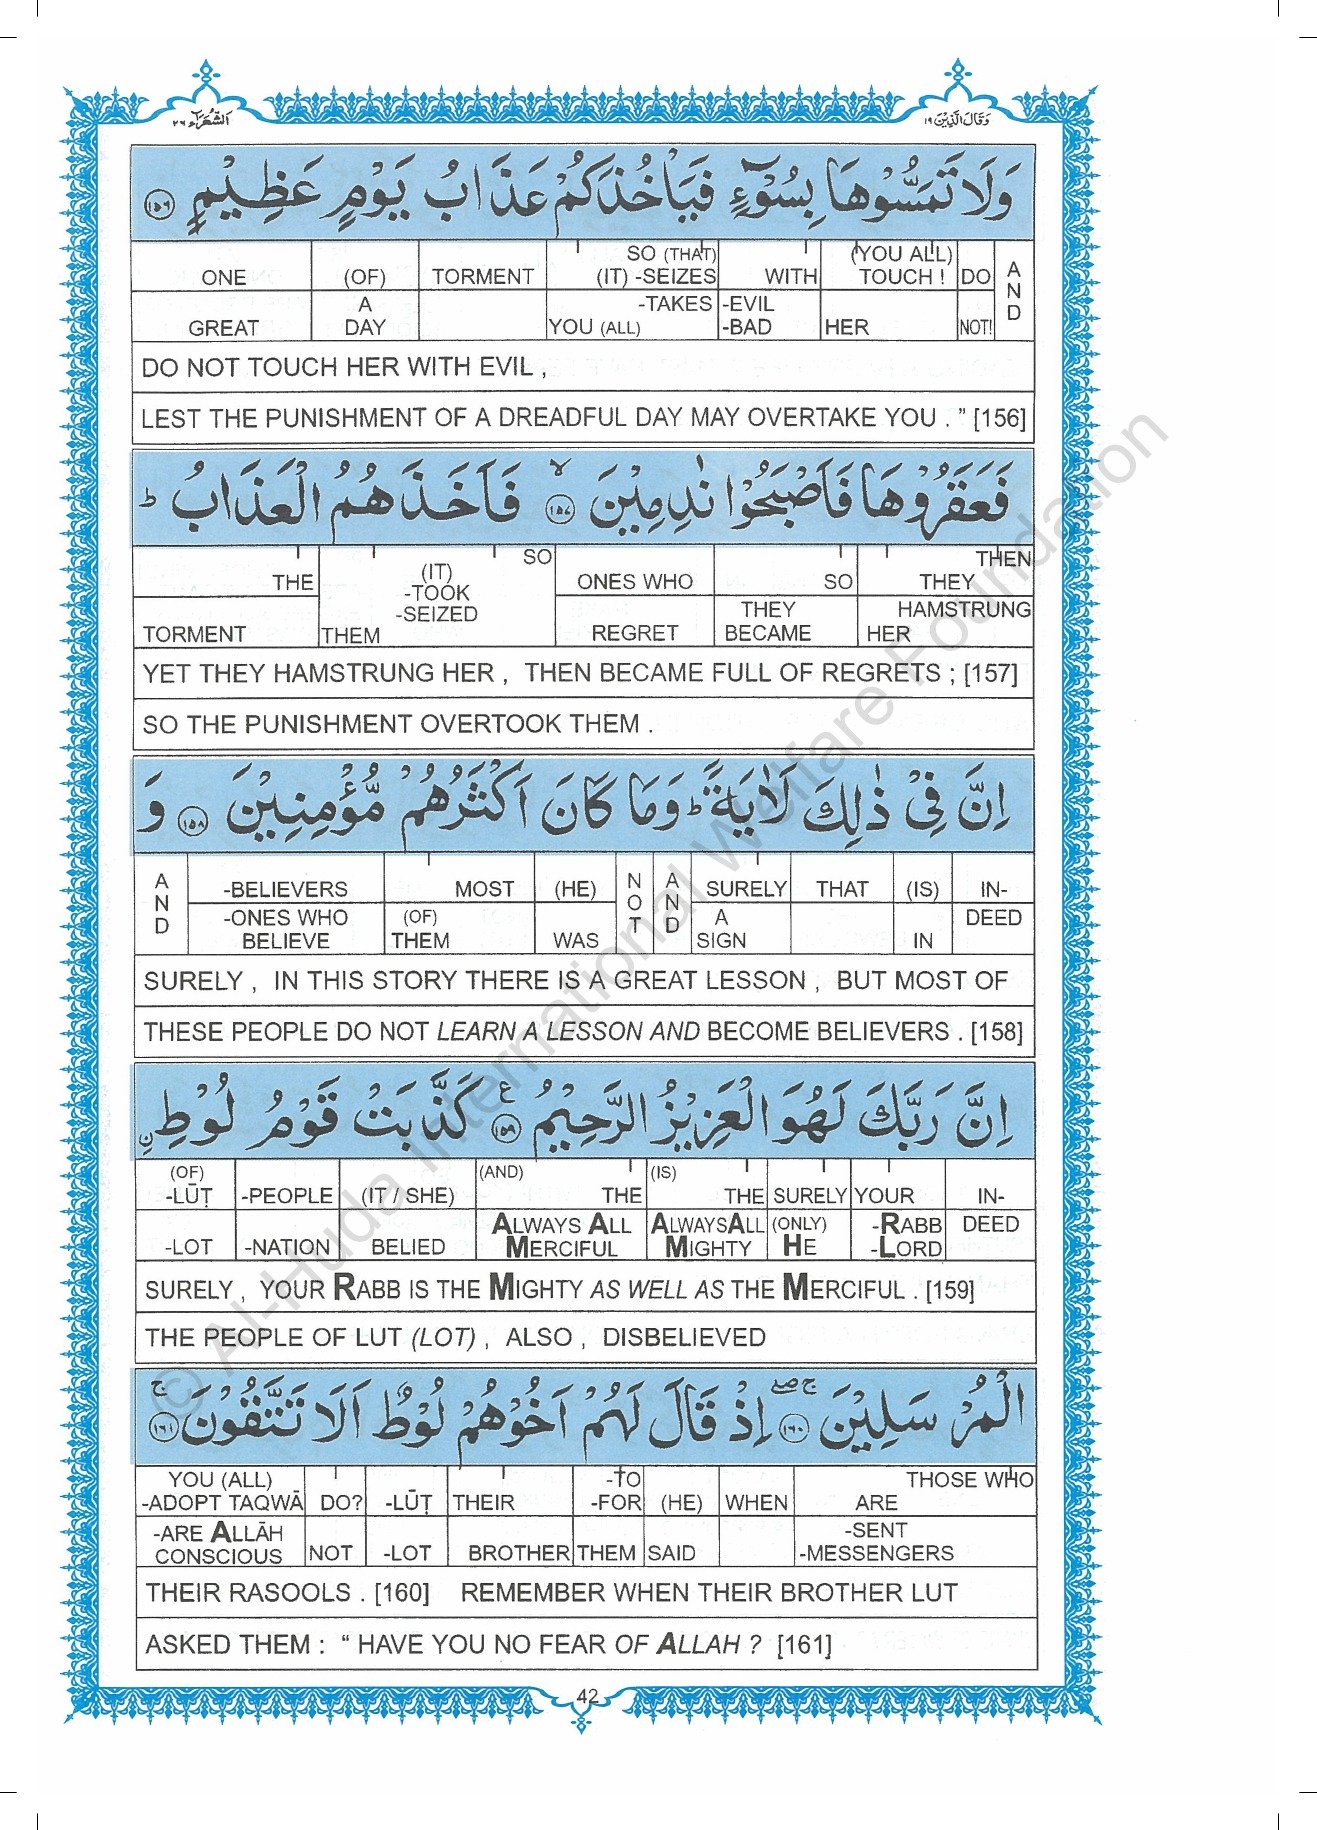 وَقَالَ الَّذِيْنَ ١٩
اَلشُّعَرَآء ٢٦
وَلَا تَمَسُّوْهَا بِسُوْٓءٍ فَيَاْخُذَكُمْ عَذَابُ يَوْمٍ عَظِيْمٍ ﴿١٥٦﴾
ONE (OF) TORMENT SO (THAT) (IT) -SEIZES WITH (YOU ALL) TOUCH ! DO AND
GREAT A DAY -TAKES YOU (ALL) -EVIL -BAD HER NOT!
DO NOT TOUCH HER WITH EVIL ,
LEST THE PUNISHMENT OF A DREADFUL DAY MAY OVERTAKE YOU . ” [156]
فَعَقَرُوْهَا فَاَصْبَحُوْا نٰدِمِيْنَ ﴿١٥٧﴾ ۙ فَاَخَذَهُمُ الْعَذَابُ ؕ
THE SO (IT) -TOOK -SEIZED ONES WHO SO THEN THEY
TORMENT THEM REGRET THEY BECAME HAMSTRUNG HER
YET THEY HAMSTRUNG HER , THEN BECAME FULL OF REGRETS ; [157]
SO THE PUNISHMENT OVERTOOK THEM .
اِنَّ فِيْ ذٰلِكَ لَاٰيَةً ؕ وَمَا كَانَ اَكْثَرُهُمْ مُّؤْمِنِيْنَ ﴿١٥٨﴾ وَ
AND -BELIEVERS MOST (HE) NOT AND SURELY THAT (IS) IN-
-ONES WHO BELIEVE (OF) THEM WAS A SIGN IN DEED
SURELY , IN THIS STORY THERE IS A GREAT LESSON , BUT MOST OF
THESE PEOPLE DO NOT LEARN A LESSON AND BECOME BELIEVERS . [158]
اِنَّ رَبَّكَ لَهُوَ الْعَزِيْزُ الرَّحِيْمُ ﴿١٥٩﴾ ع كَذَّبَتْ قَوْمُ لُوْطِ ن
(OF) -LŪṬ -PEOPLE (IT / SHE) (AND) THE (IS) THE SURELY YOUR IN-
-LOT -NATION BELIED ALWAYS ALL MERCIFUL ALWAYSALL MIGHTY (ONLY) HE -RABB -LORD DEED
SURELY , YOUR RABB IS THE MIGHTY AS WELL AS THE MERCIFUL . [159]
THE PEOPLE OF LUT (LOT) , ALSO , DISBELIEVED
الْمُرْسَلِيْنَ ﴿١٦٠﴾ ۖۚ اِذْ قَالَ لَهُمْ اَخُوْهُمْ لُوْطٌ اَلَا تَتَّقُوْنَ ﴿١٦١﴾ ۚ
YOU (ALL) -ADOPT TAQWĀ DO? -LŪṬ THEIR -TO -FOR (HE) WHEN THOSE WHO ARE
-ARE ALLĀH CONSCIOUS NOT -LOT BROTHER THEM SAID -SENT -MESSENGERS
THEIR RASOOLS . [160] REMEMBER WHEN THEIR BROTHER LUT
ASKED THEM : “ HAVE YOU NO FEAR OF ALLAH ? [161]
42
© Al-Huda International Welfare Foundation